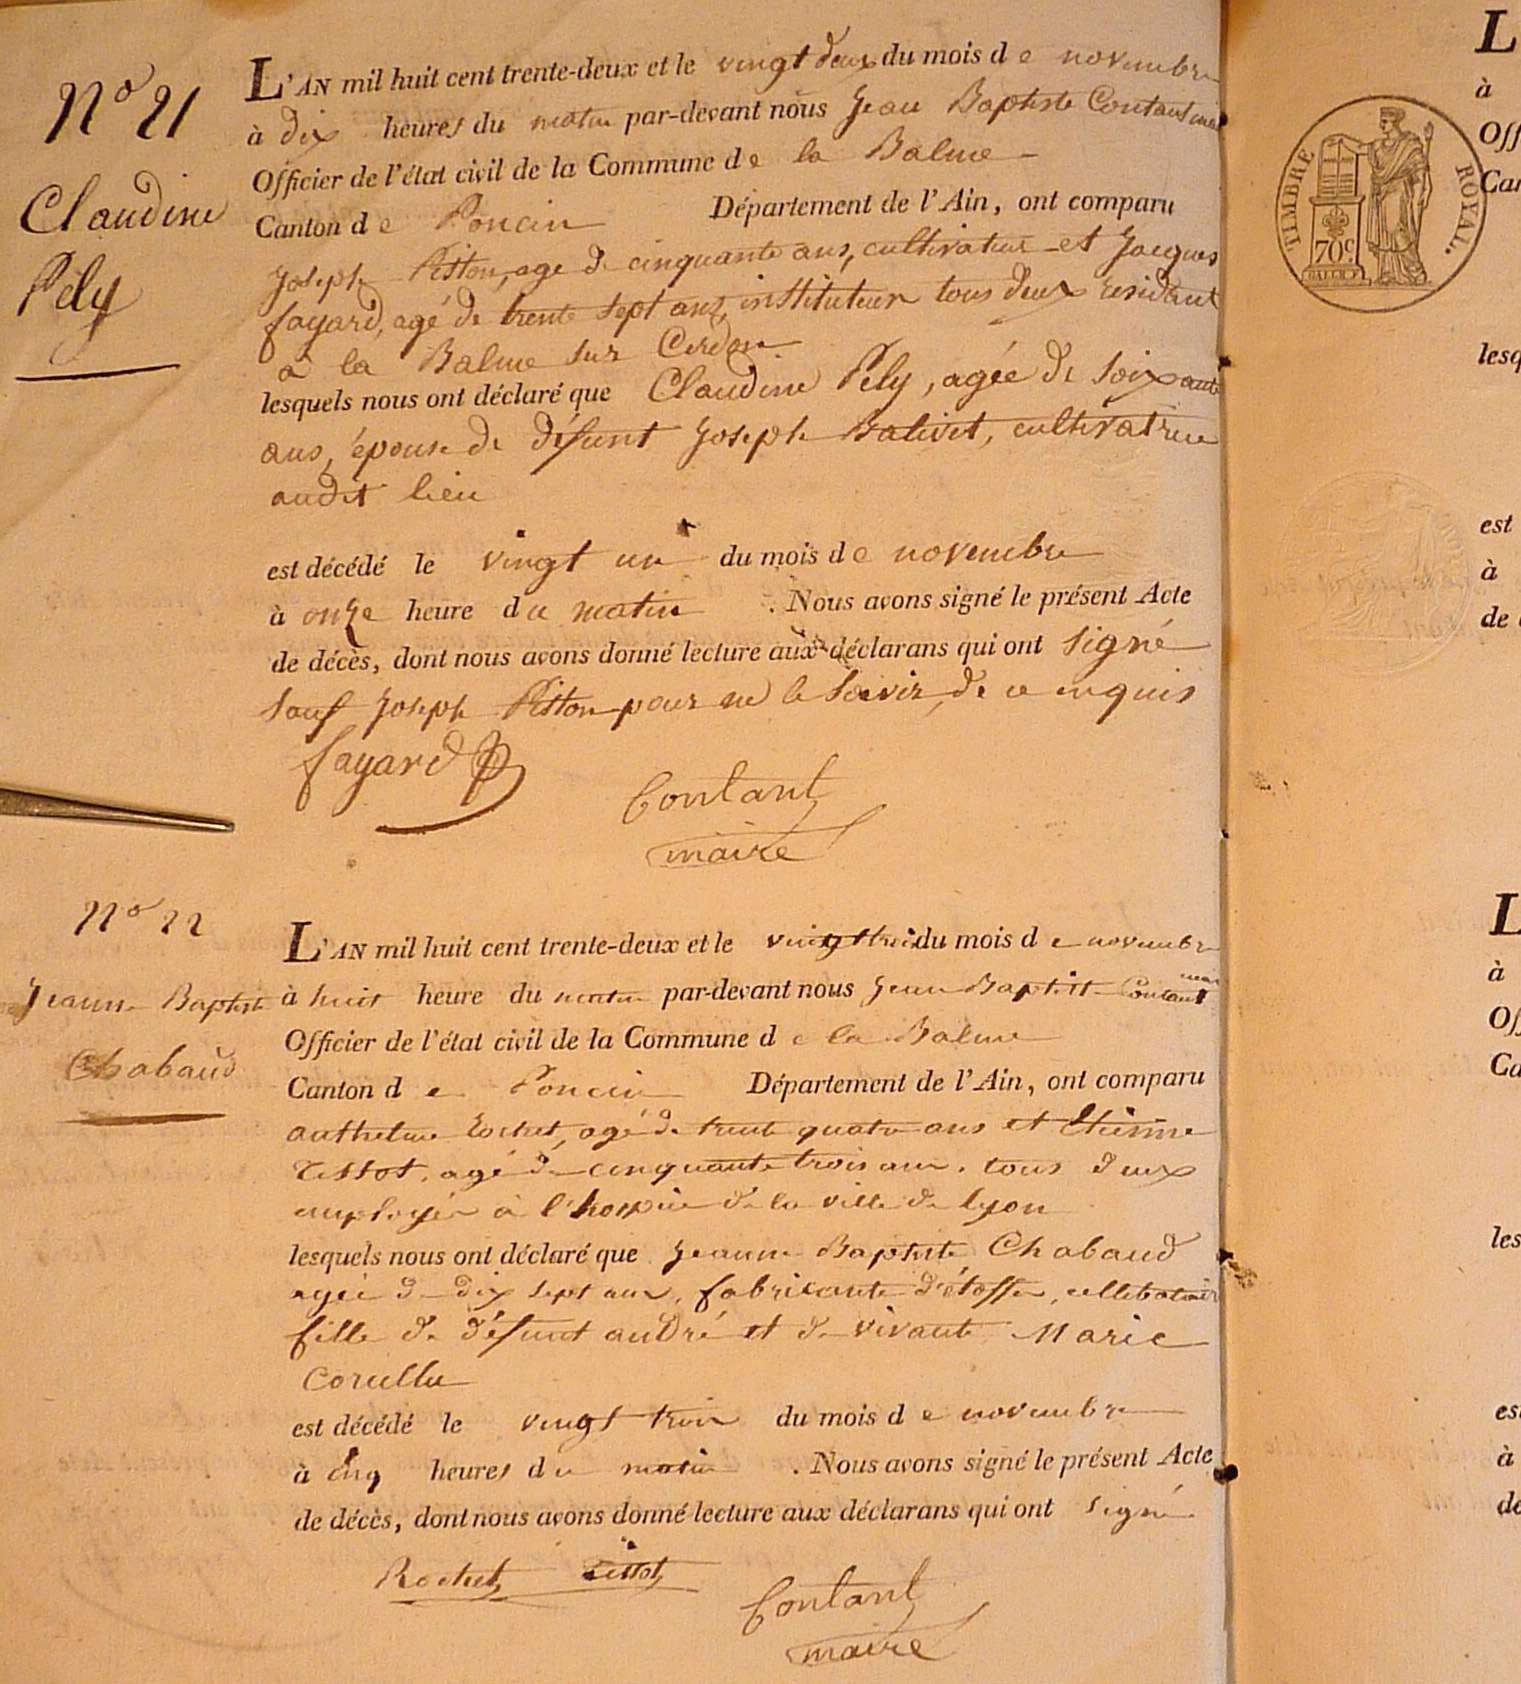 N° 21
Claudine
Pély
L'AN mil huit cent trente-deux et le vingt deux du mois de novembre
à dix heures du matin par-devant nous Jean Baptiste Contant maire
Officier de l'état civil de la Commune de la Balme
Canton de Poncin Département de l'Ain, ont comparu
Joseph Piston, agé de cinquante ans, cultivateur et Jacques
fayard, agé de trente sept ans, instituteur tous deux residant
a la Balme sur Cerdon
lesquels nous ont déclaré que Claudine Pély, agée de soixante
ans, épouse de défunt Joseph Balivet, cultivatrice
audit lieu
est décédé le vingt un du mois de novembre
à onze heure du matin . Nous avons signé le présent Acte
de décès, dont nous avons donné lecture aux déclarans qui ont signé
sauf Joseph Piston pour ne le savoir, de ce enquis
fayard
Contant
maire
N° 22
Jeanne Baptiste
Chabaud
L'AN mil huit cent trente-deux et le vingt trois du mois de novembre
à huit heure du matin par-devant nous Jean Baptiste Contant maire
Officier de l'état civil de la Commune de la Balme
Canton de Poncin Département de l'Ain, ont comparu
anthelme Rochet, agé de trente quatre ans et Etienne
Tissot, agé de cinquante trois ans, tous deux
employés à l'hospice de la ville de lyon
lesquels nous ont déclaré que Jeanne Baptiste Chabaud
agée de dix sept ans, fabricante d'étoffes, cellibataire
fille de défunt andré et de vivante Marie
est décédé le vingt trois du mois de novembre
à cinq heures du matin . Nous avons signé le présent Acte
de décès, dont nous avons donné lecture aux déclarans qui ont signé
Rochet Tissot
Contant
maire
L
à
Off
TIMBRE ROYAL.
70c.
Can
lesq
est
à
de
L
à
Off
Ca
les
est
à
de